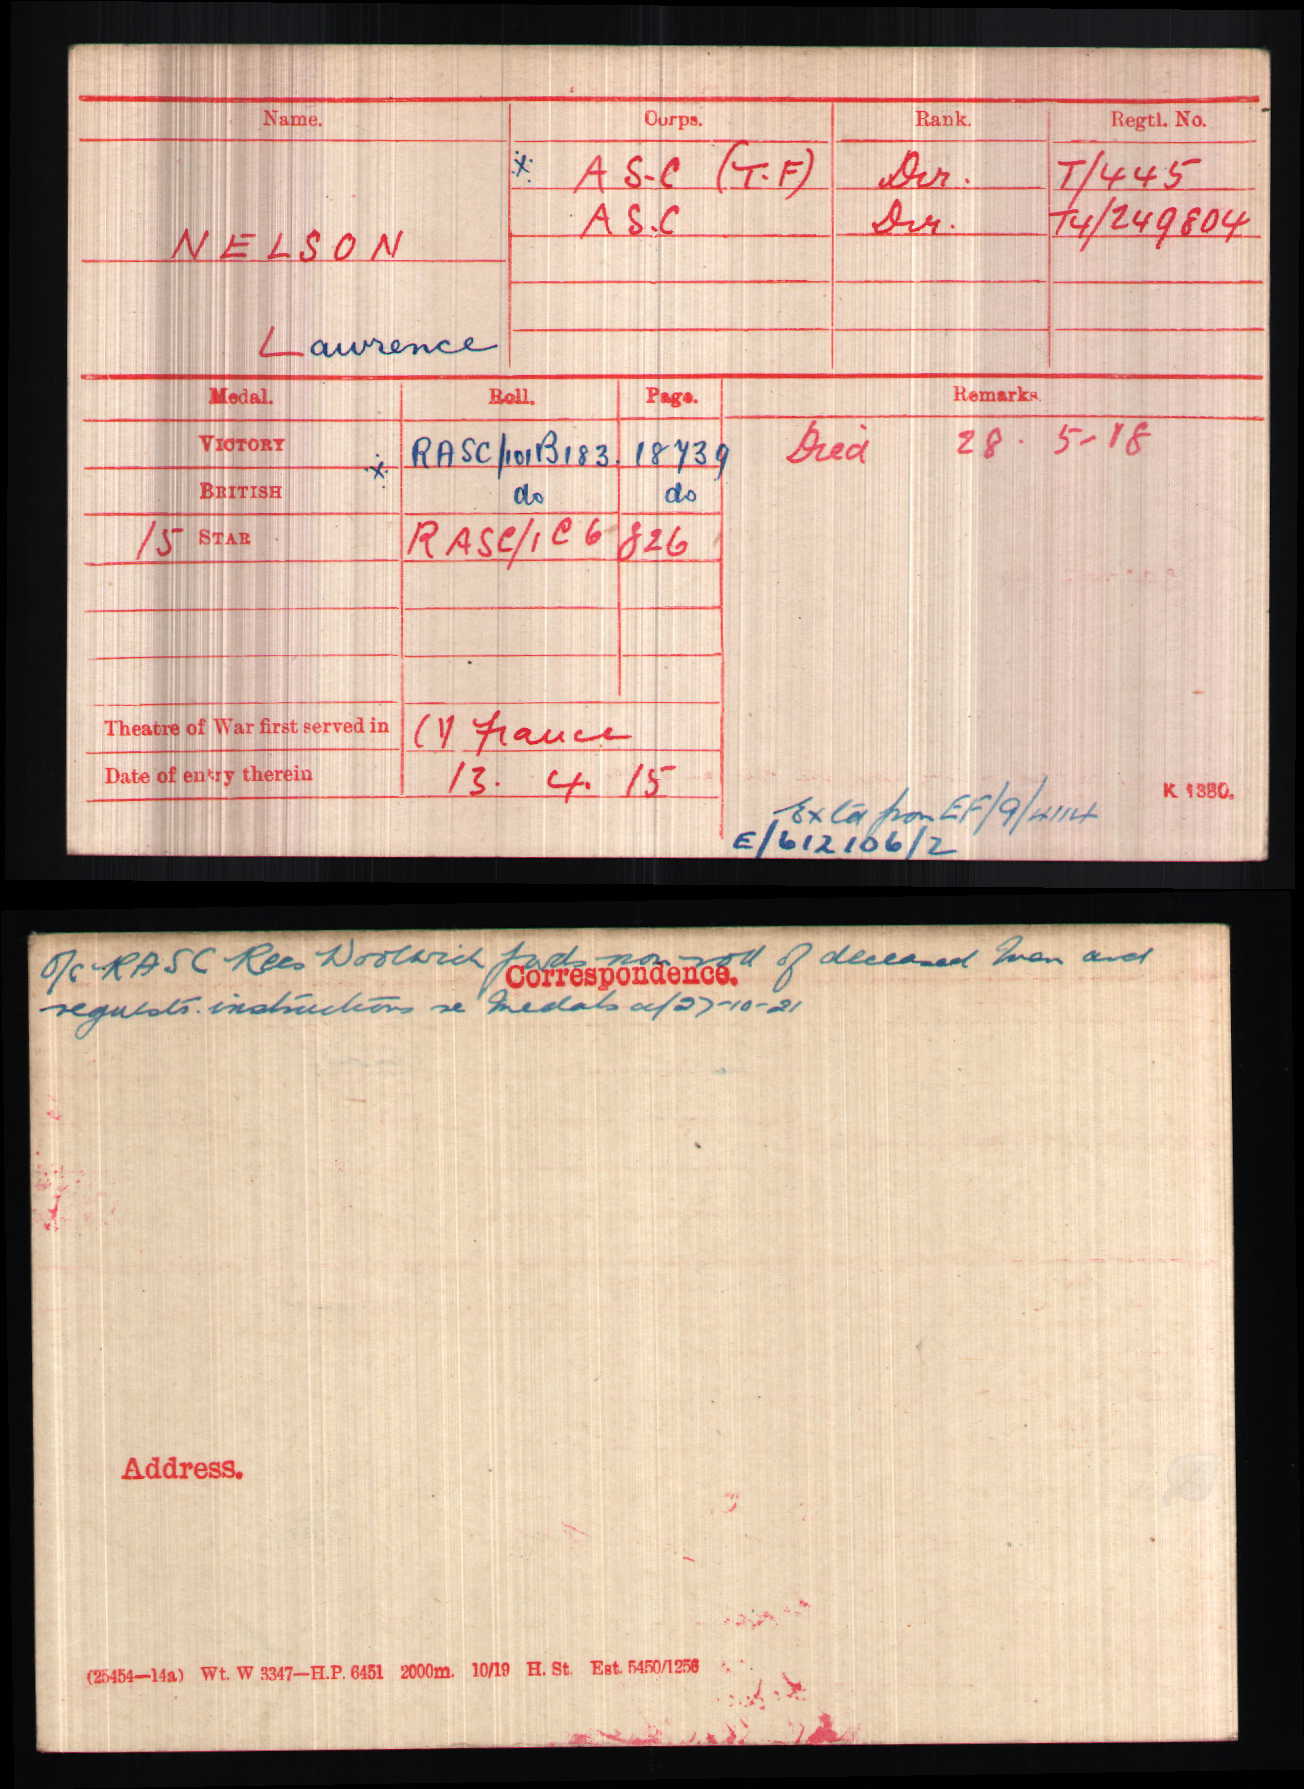 Name. Corps. Rank. Regtl. No.
A S.C (T.F) Dvr. T/445
NELSON A S.C Dvr. T4/249804
Lawrence
Medal. Roll. Page. Remarks.
VICTORY RASC/101B183. 18739 Died 28. 5-18
BRITISH do do
15 STAR RASC/1C6 826
Theatre of War first served in (1) France
Date of entry therein 13. 4. 15
K 1380.
from EF/9/4114
E/612106/2
O/c RASC Recs Woolwich fwds nom roll of deceased men and
Correspondence.
requests instructions re Medals d/27-10-21
Address.
(25454—14a) Wt. W 3347—H.P. 6451 2000m. 10/19 H. St. Est. 5450/1256